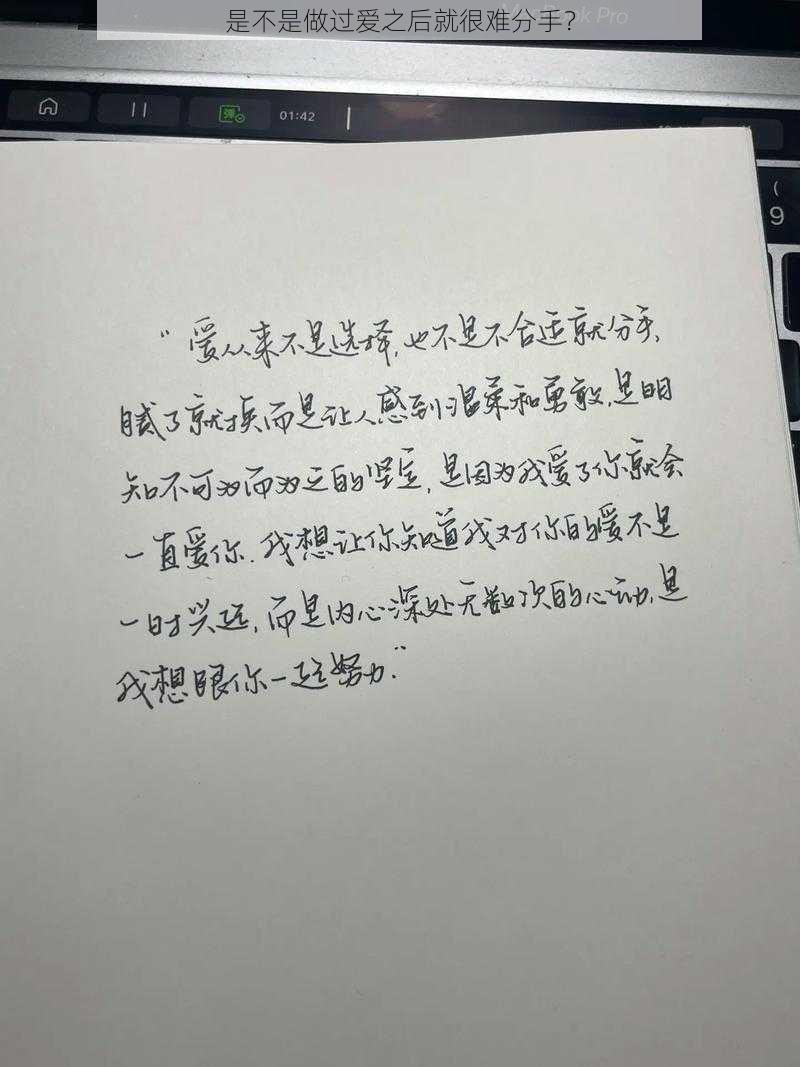 是不是做过爱之后就很难分手？
MacBook Pro
弹
01:42
(
9
"爱从来不是选择,也不是不合适就分手,
腻了就换而是让人感到温柔和勇敢,是明
知不可为而为之的坚定,是因为我爱了你就会
一直爱你.我想让你知道我对你的爱不是
一时兴起,而是内心深处无数次的心动,是
我想跟你一起努力."